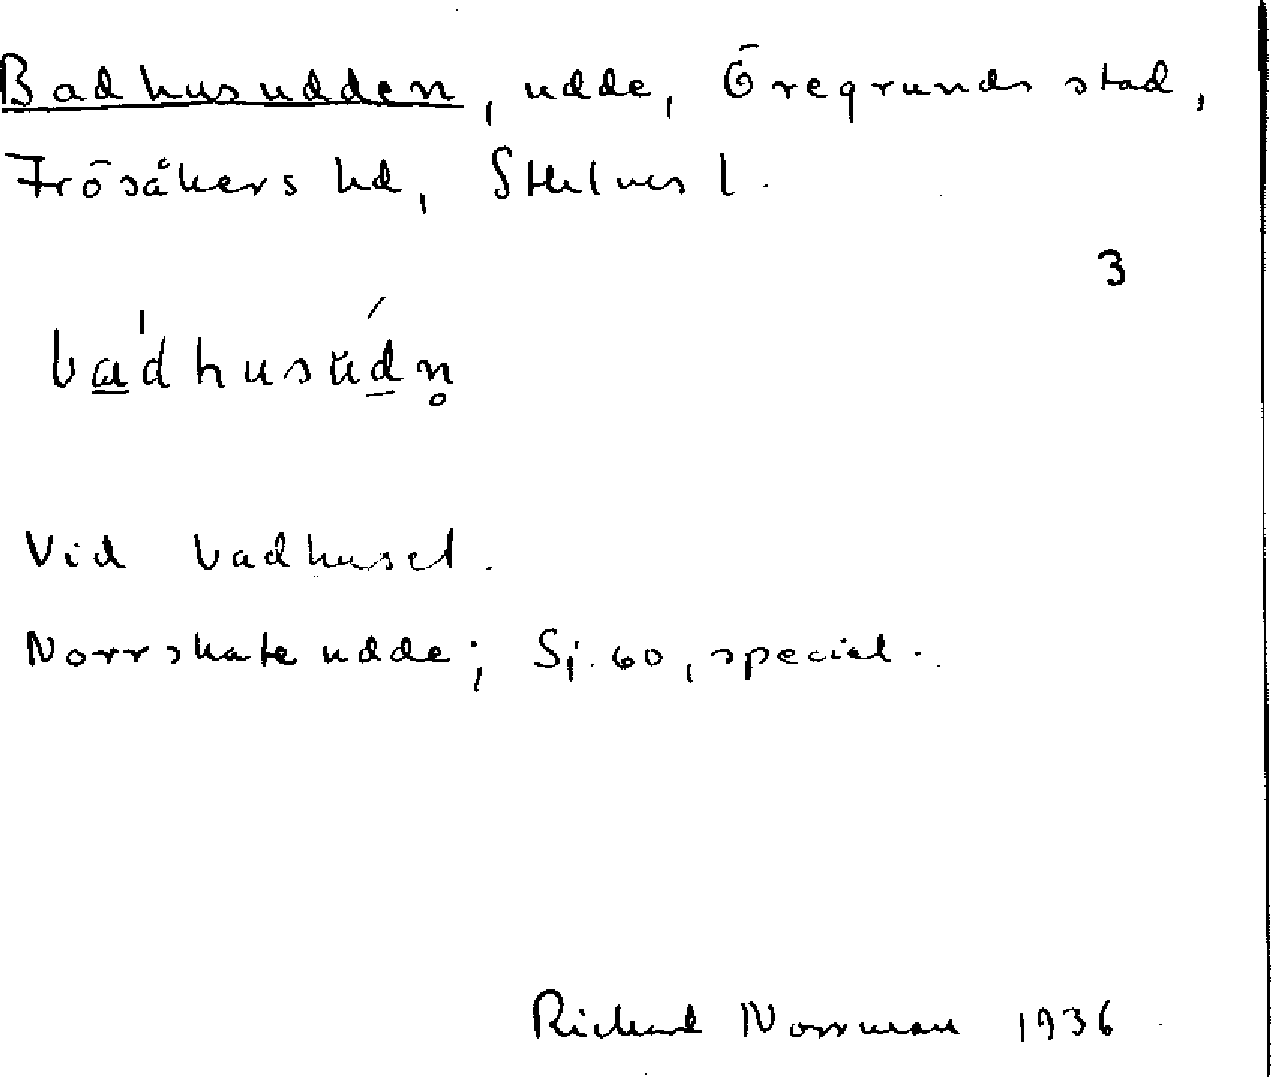 Badhusudden, udde, Öregrunds stad,
Frösåkers hd, Sthlms l.
3
ba̲'dhusŭ´d̲n̥
Vid badhuset.
Norrskate udde; Sj. 60, special.
Richard Norrman 1936